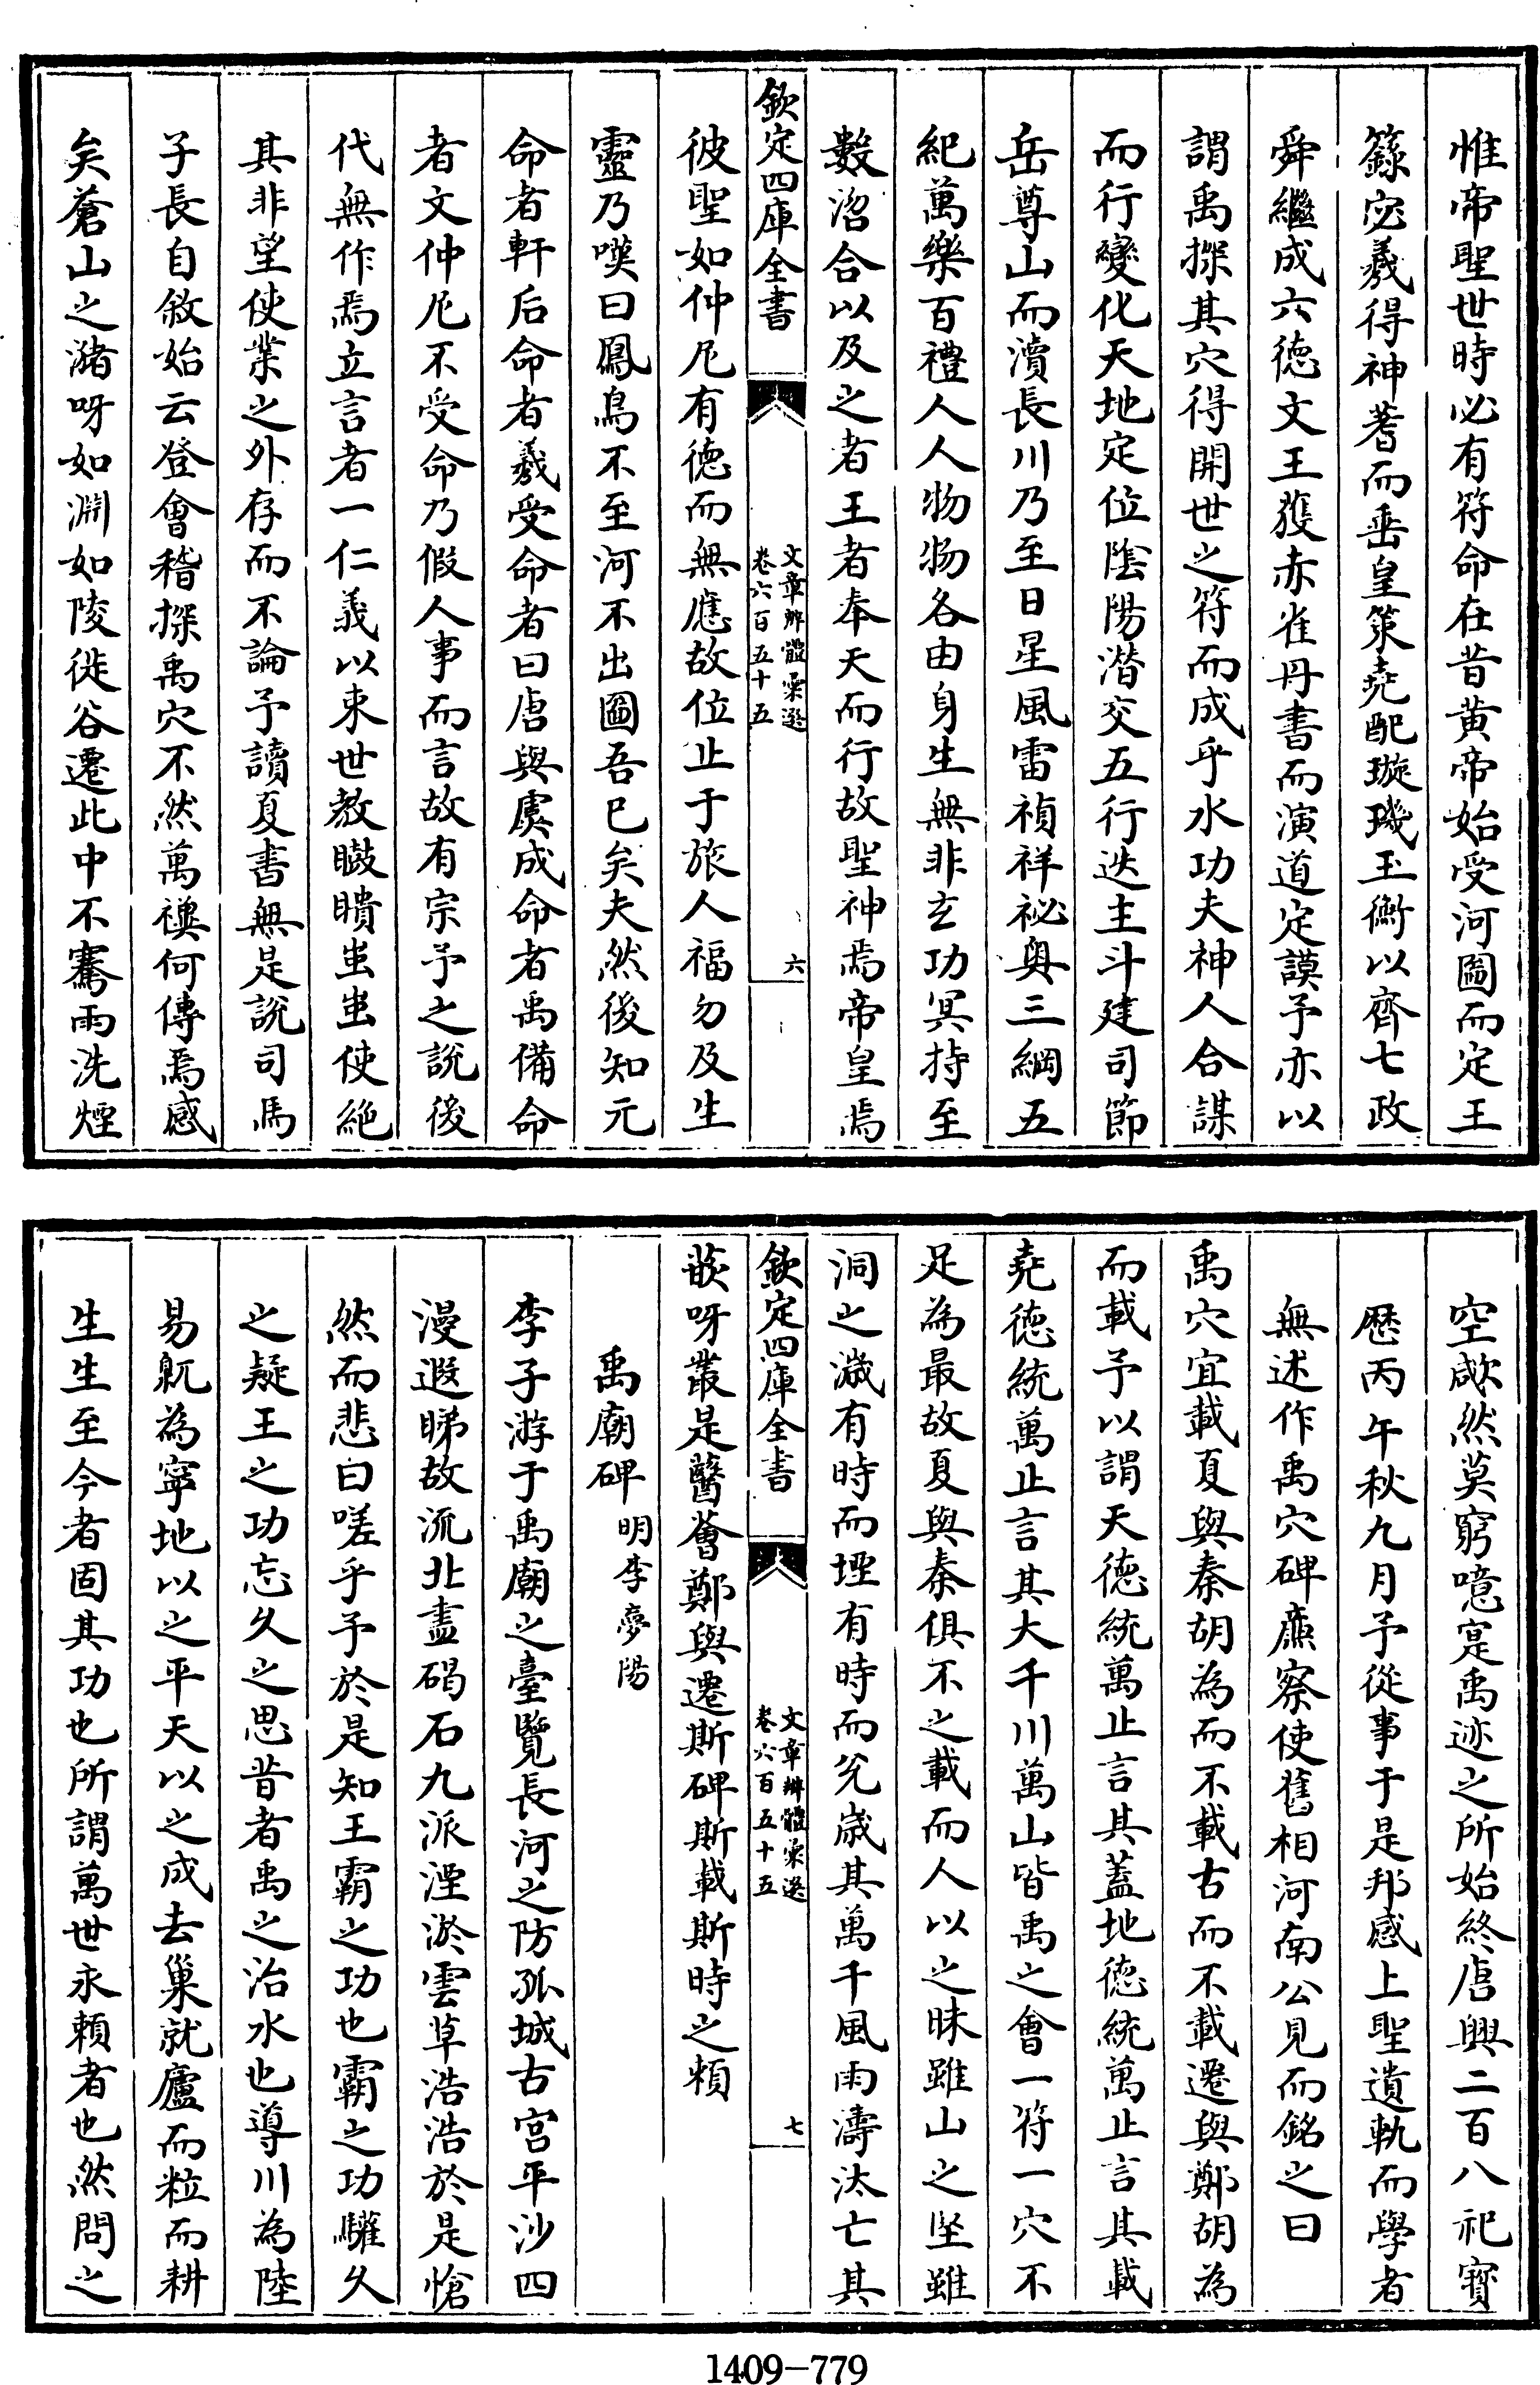 惟帝聖世時必有符命在昔黄帝始受河圖而定王
籙宓羲得神蓍而垂皇策堯配璇璣玉衡以齊七政
舜繼成六徳文王獲赤雀丹書而演道定謨予亦以
謂禹探其穴得開世之符而成乎水功夫神人合謀
而行變化天地定位陰陽潛交五行迭主斗建司節
岳尊山而瀆長川乃至日星風雷禎祥祕奥三綱五
紀萬樂百禮人人物物各由身生無非玄功冥持至
數沼合以及之者王者奉天而行故聖神焉帝皇焉
欽定四庫全書
文章辨體彚選
卷六百五十五
六
彼聖如仲尼有徳而無應故位止于旅人福勿及生
靈乃嘆曰鳳鳥不至河不出圖吾已矣夫然後知元
命者軒后命者羲受命者曰唐與虞成命者禹備命
者文仲尼不受命乃假人事而言故有宗予之說後
代無作焉立言者一仁義以束世教瞽瞶蚩蚩使絶
其非望使業之外存而不論予讀夏書無是説司馬
子長自敘始云登會稽探禹穴不然萬禩何傳焉感
矣蒼山之潴呀如淵如陵徙谷遷此中不騫雨洗煙
空歘然莫窮噫寔禹迹之所始終唐興二百八祀寳
歴丙午秋九月予從事于是邦感上聖遺軌而學者
無述作禹穴碑廉察使舊相河南公見而銘之曰
禹穴宜載夏與秦胡為而不載古而不載遷與鄭胡為
而載予以謂天徳統萬止言其蓋地徳統萬止言其載
堯徳統萬止言其大千川萬山皆禹之會一符一穴不
足為最故夏與秦俱不之載而人以之昧雖山之堅雖
洞之濊有時而堙有時而兊嵗其萬千風雨濤汰亡其
欽定四庫全書
文章辨體彚選
卷六百五十五
七
嵌呀叢是翳薈鄭與遷斯碑斯載斯時之頼
禹廟碑 明李夢陽
李子游于禹廟之臺覽長河之防孤城古宫平沙四
漫遐睇故流北盡碣石九派湮淤雲草浩浩於是愴
然而悲曰嗟乎予於是知王霸之功也霸之功驩久
之疑王之功忘久之思昔者禹之治水也導川為陸
易䡾為寧地以之平天以之成去巢就廬而粒而耕
生生至今者固其功也所謂萬世永頼者也然問之
1409-779